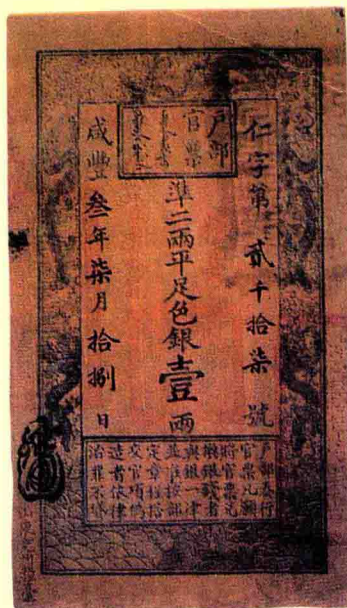 仁字第貳千拾柒號
戶部
官票
準二兩平足色銀壹兩
咸豐叁年柒月拾捌日
戶部奏行
官票凡願
將官票兌
換銀錢者
與銀一律
並准按部
定章程搭
交官項偽
造者依律
治罪不貸